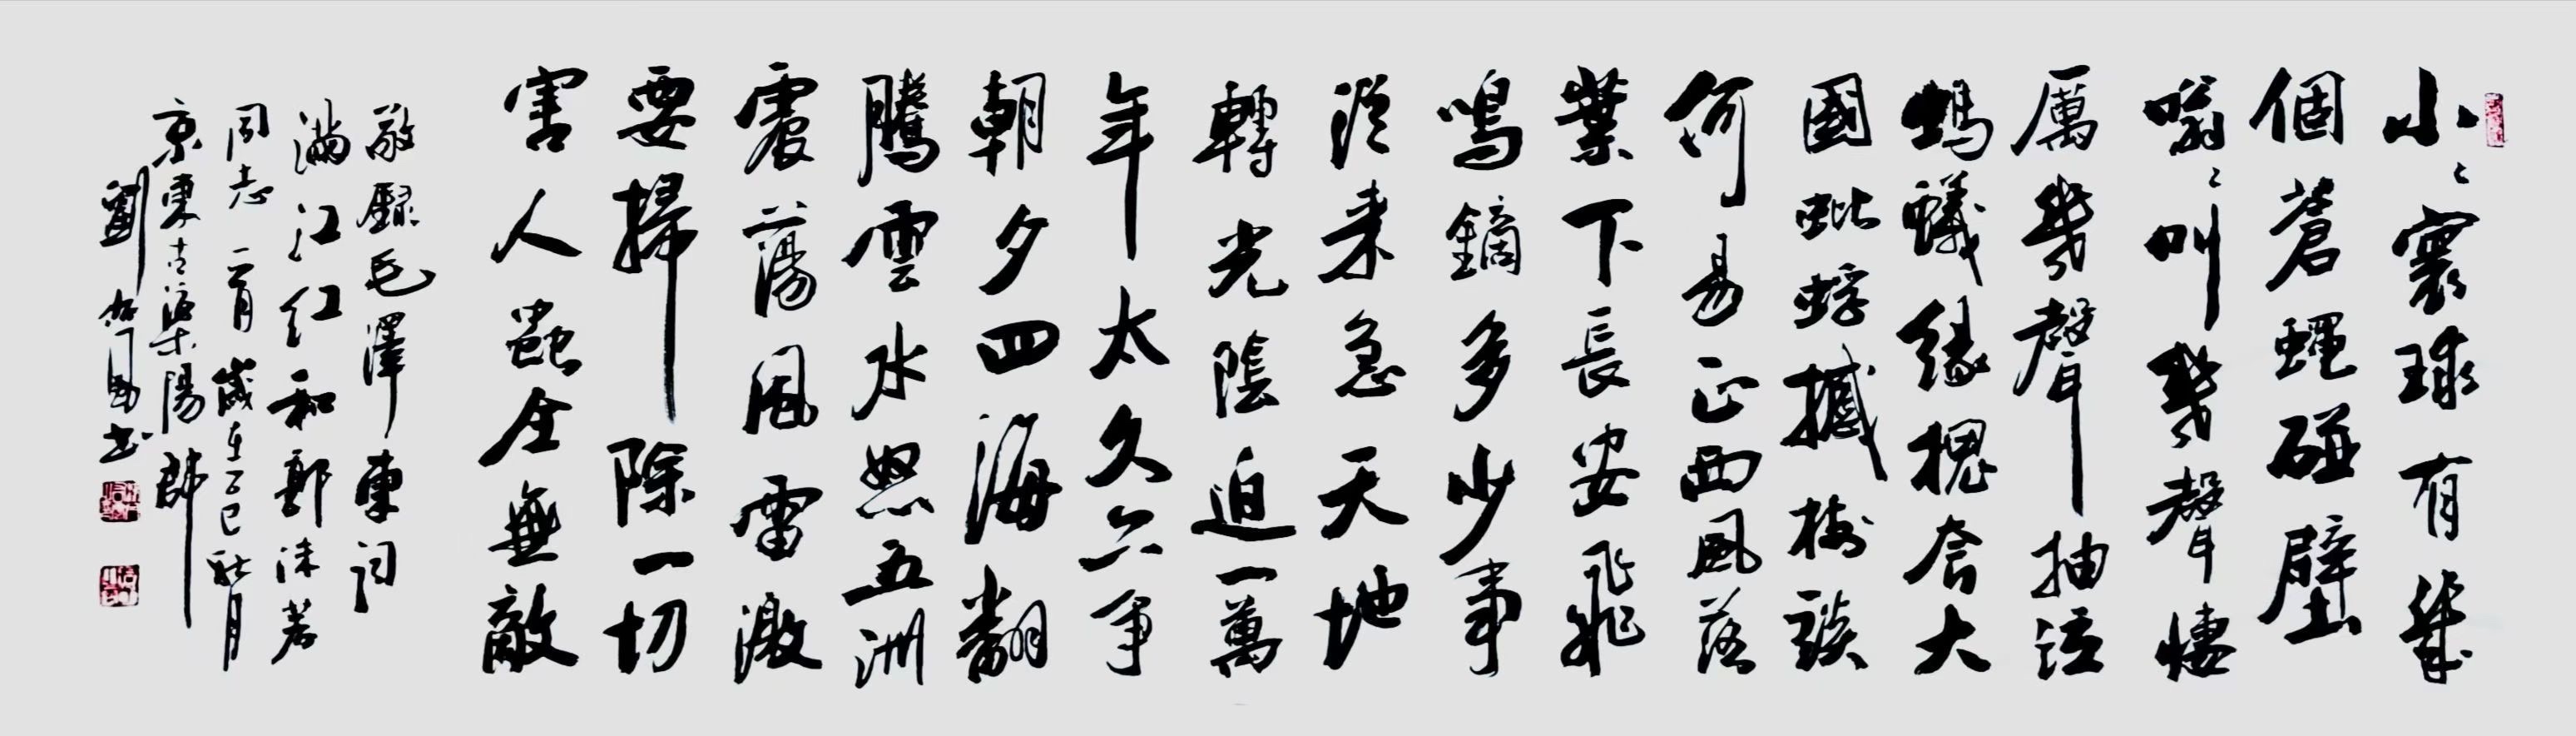 小〻寰球有幾
個蒼蠅碰壁
嗡〻叫幾聲悽
厲幾聲抽泣
螞蟻緣槐夸大
國蚍蜉撼樹談
何易正西風落
葉下長安飛
鳴鏑多少事
從来急天地
轉光陰迫一萬
年太久只争
朝夕四海翻
騰雲水怒五洲
震蕩風雷激
要掃除一切
害人蟲全無敵
敬録毛澤東詞
滿江红和郭沫若
同志一首歲在乙巳秋月
京東古渠陽
劉國书